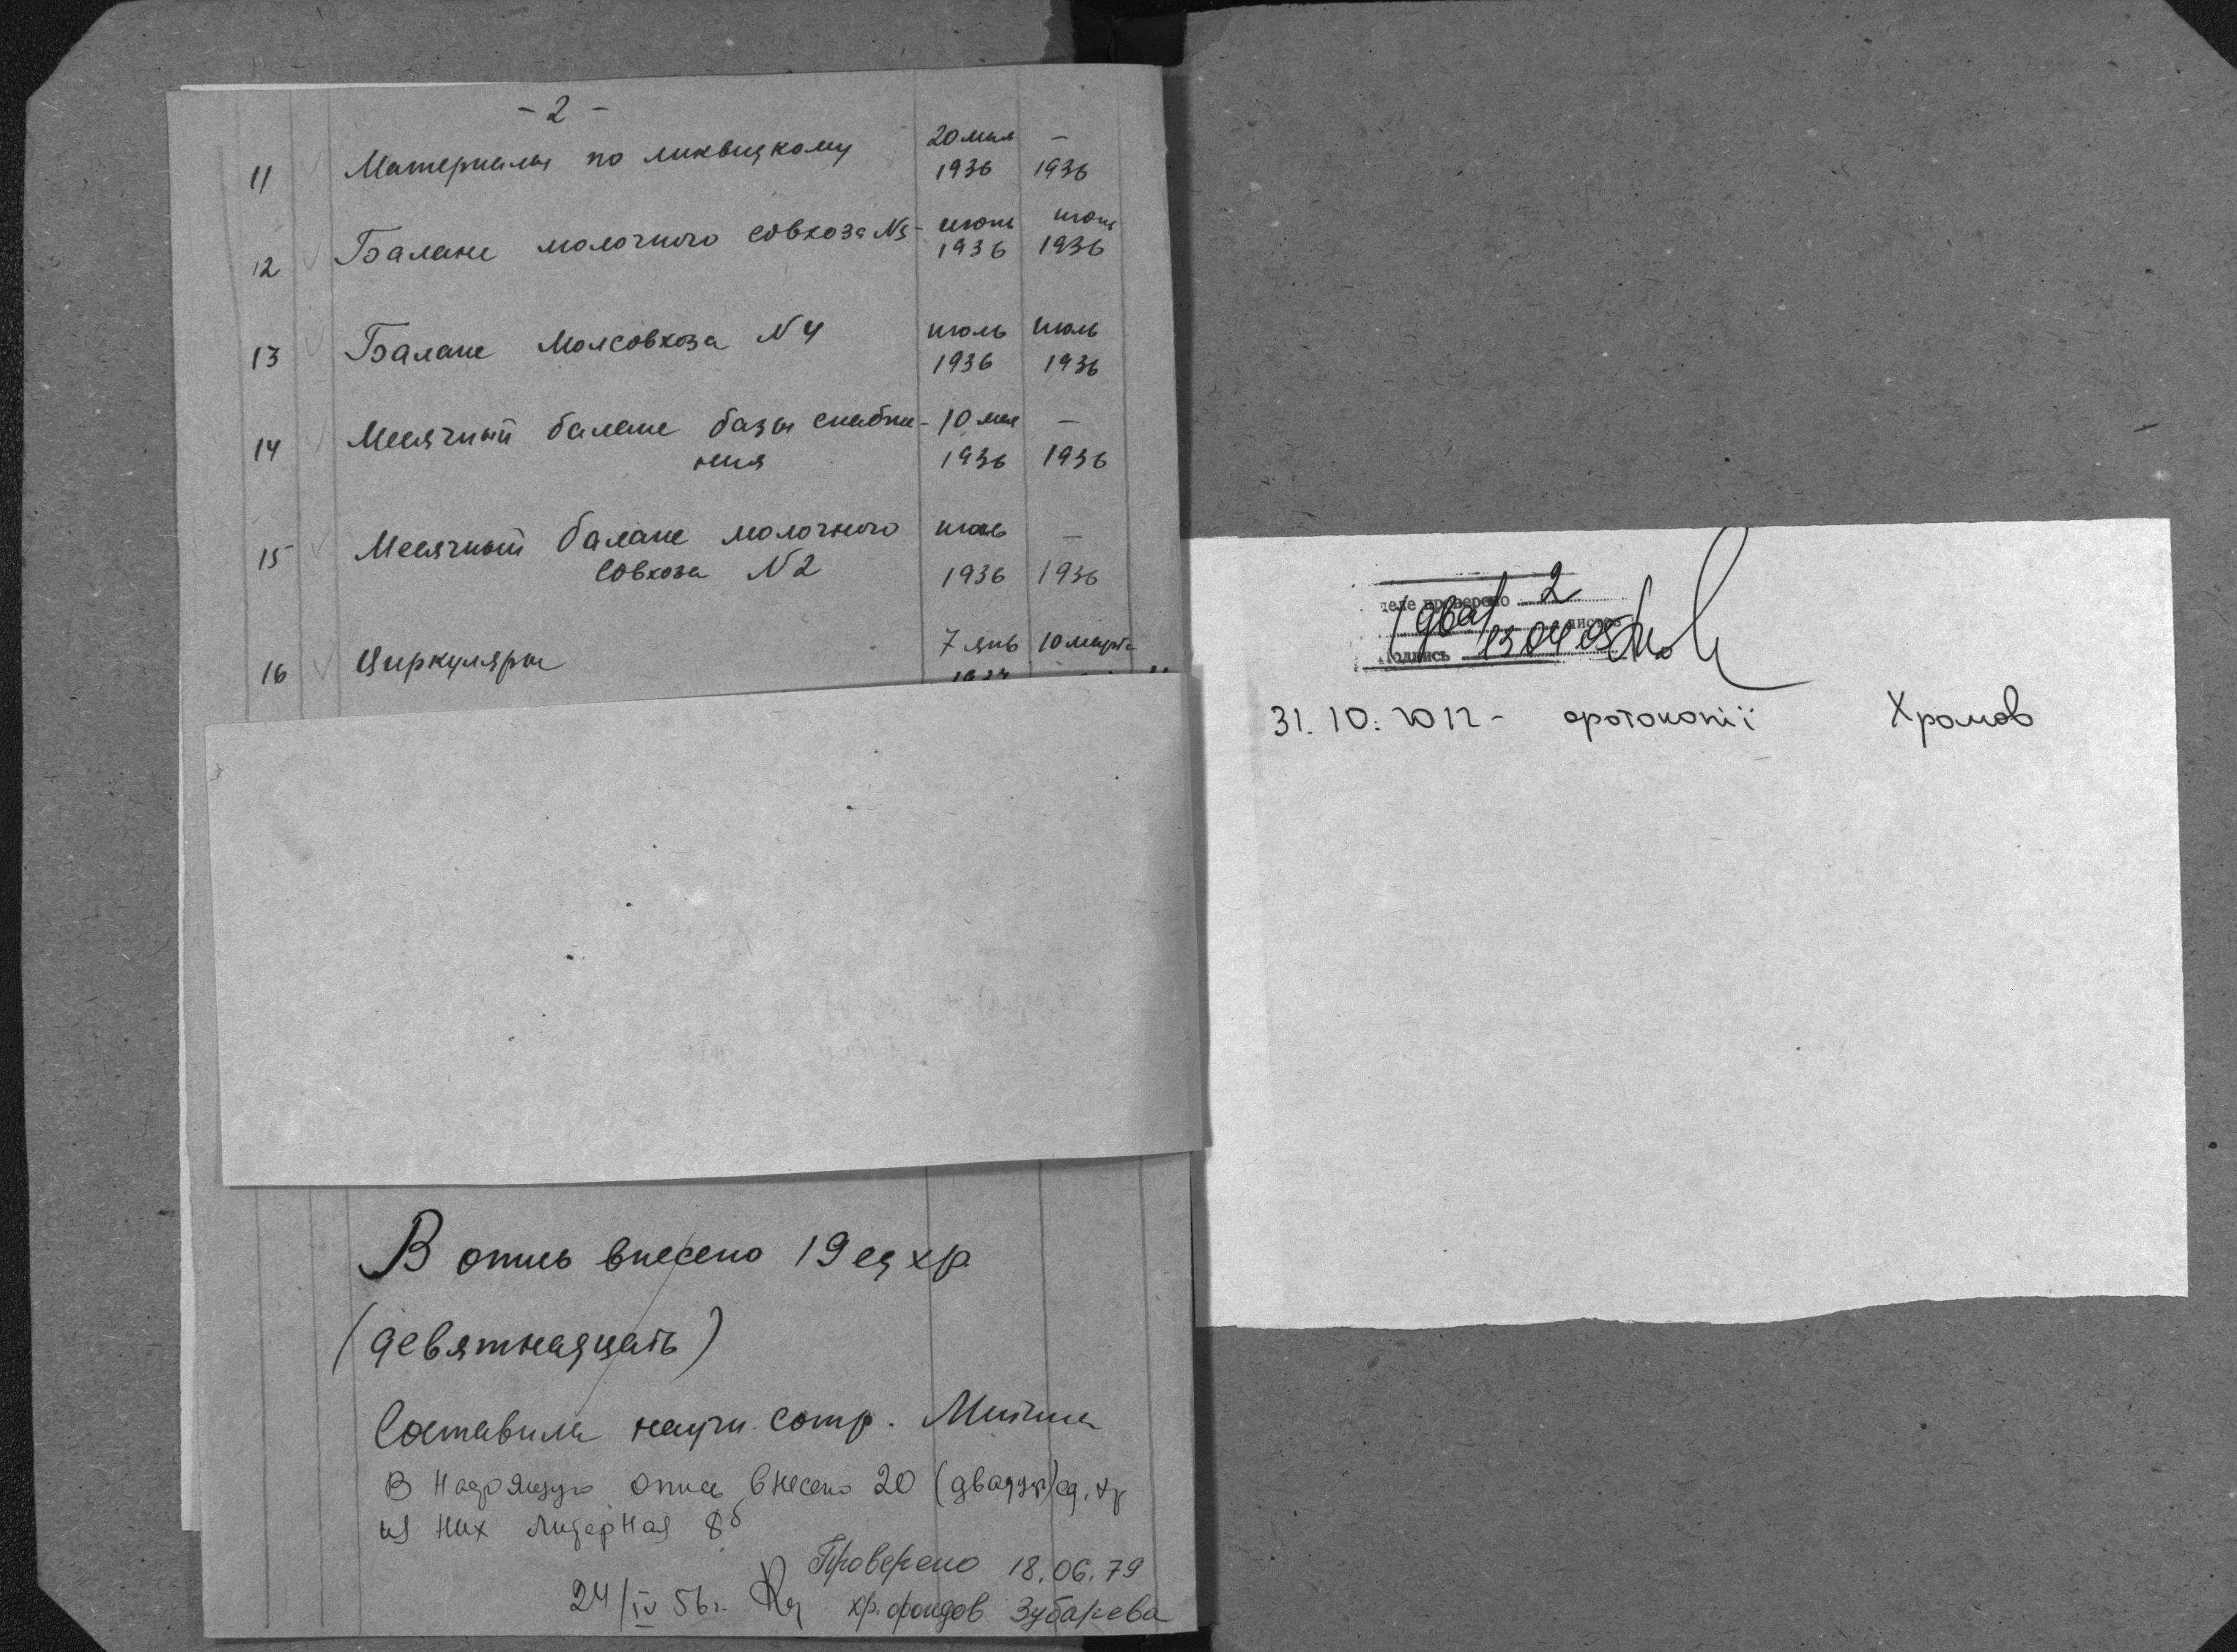 - 2 -
11 Материалы по ликвидкому 20 мая -
1936 1936
12 Баланс молочного совхоза №5- июнь июнь
1936 1936
13 Баланс Молсовхоза N 4 июль июль
1936 1936
14 Месячный баланс базы снабже- 10 мая -
ния 1936 1936
15 Месячный баланс молочного июль -
совхоза N 2 1936 1936
16 Циркуляры 7 янв 10 марта
В опись внесено 19 ед хр
(девятнадцать)
Составила научн. сотр. Митина
В опись внесено 20 ед. хр
из них литерная 8б
Проверено 18.06.79
24/IV 56г. хр. фондов Зубарева
деле проверено 2
(два) листов
подпись 13 04 05
31.10.2012- фотокопії Храмов